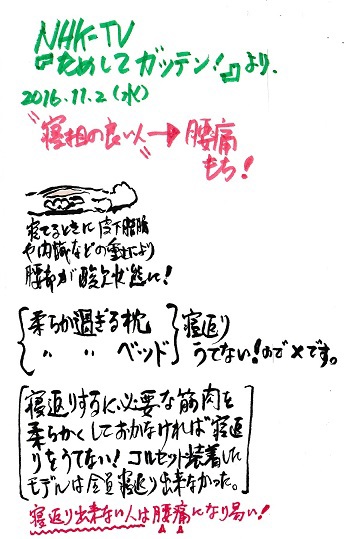 NHK-TV
『ためしてガッテン!』より.
2016.11.2(水)
"寝相の良い人"→腰痛
もち!
寝てるときに皮下脂肪
や内臓などの重さにより
腰部が酸欠状態に!
柔らか過ぎる枕
〃 〃 ベッド
寝返り
うてない!ので×です。
寝返りするに必要な筋肉を
柔らかくしておかなければ寝返
りをうてない!コルセット装着した
モデルは全員寝返り出来なかった。
寝返り出来ない人は腰痛になり易い!